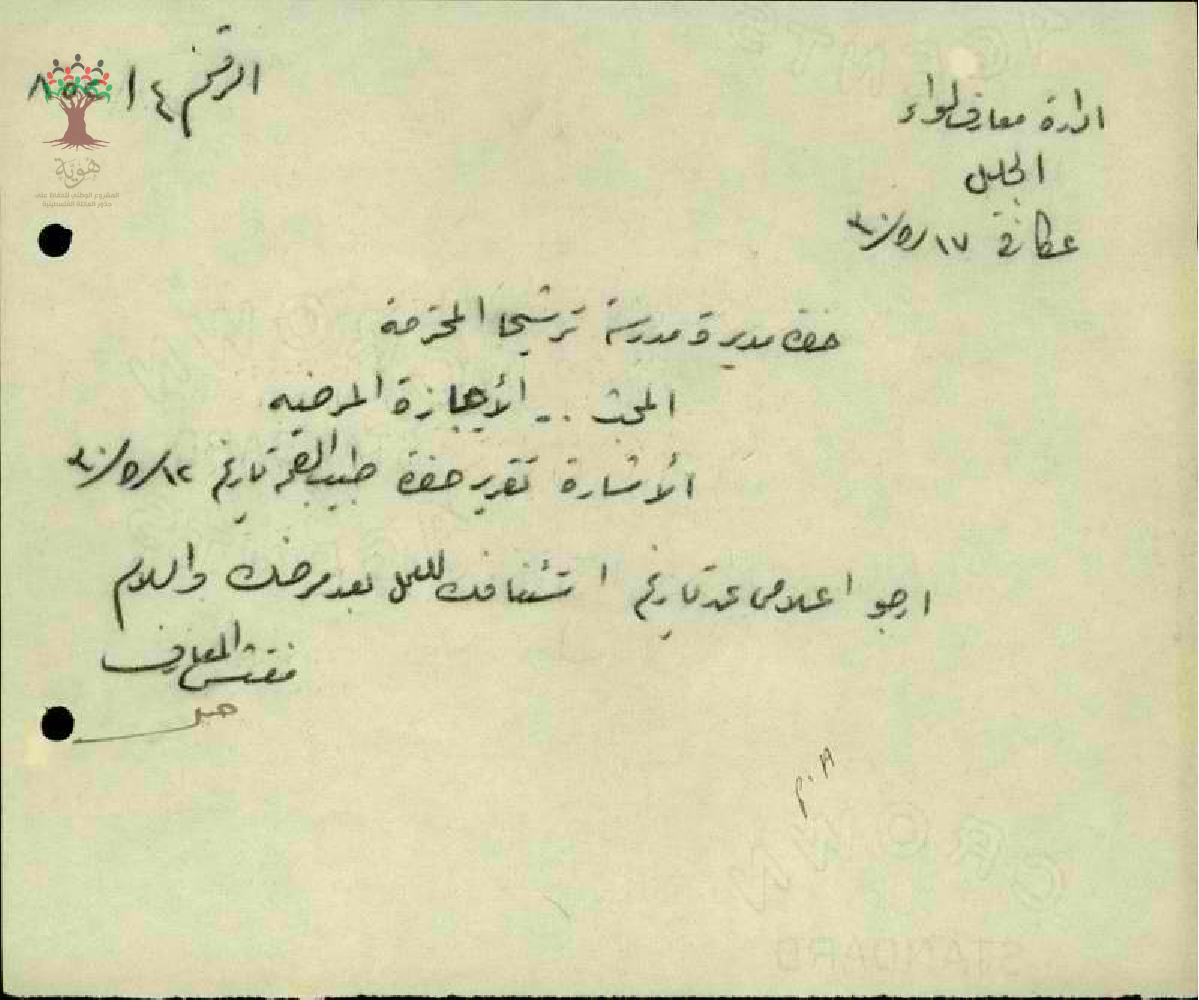 الرقم ٤ /
ادارة معارف لواء
الجليل
عكا في ١٧/٥/٣٠
حضرة مديرة مدرسة ترشيحا المحترمة
المبحث .. الأجازة المرضيه
الأشارة تقرير حضرة طبيب الصحة تاريخ ١٢/٥/٣٠
ارجو اعلامي عن تاريخ استئنافك للعمل بعد مرضك والسلام
مفتش المعارف
P.A
هوية
المشروع الوطني للحفاظ على
جذور العائلة الفلسطينية
CROWN
STANDARD